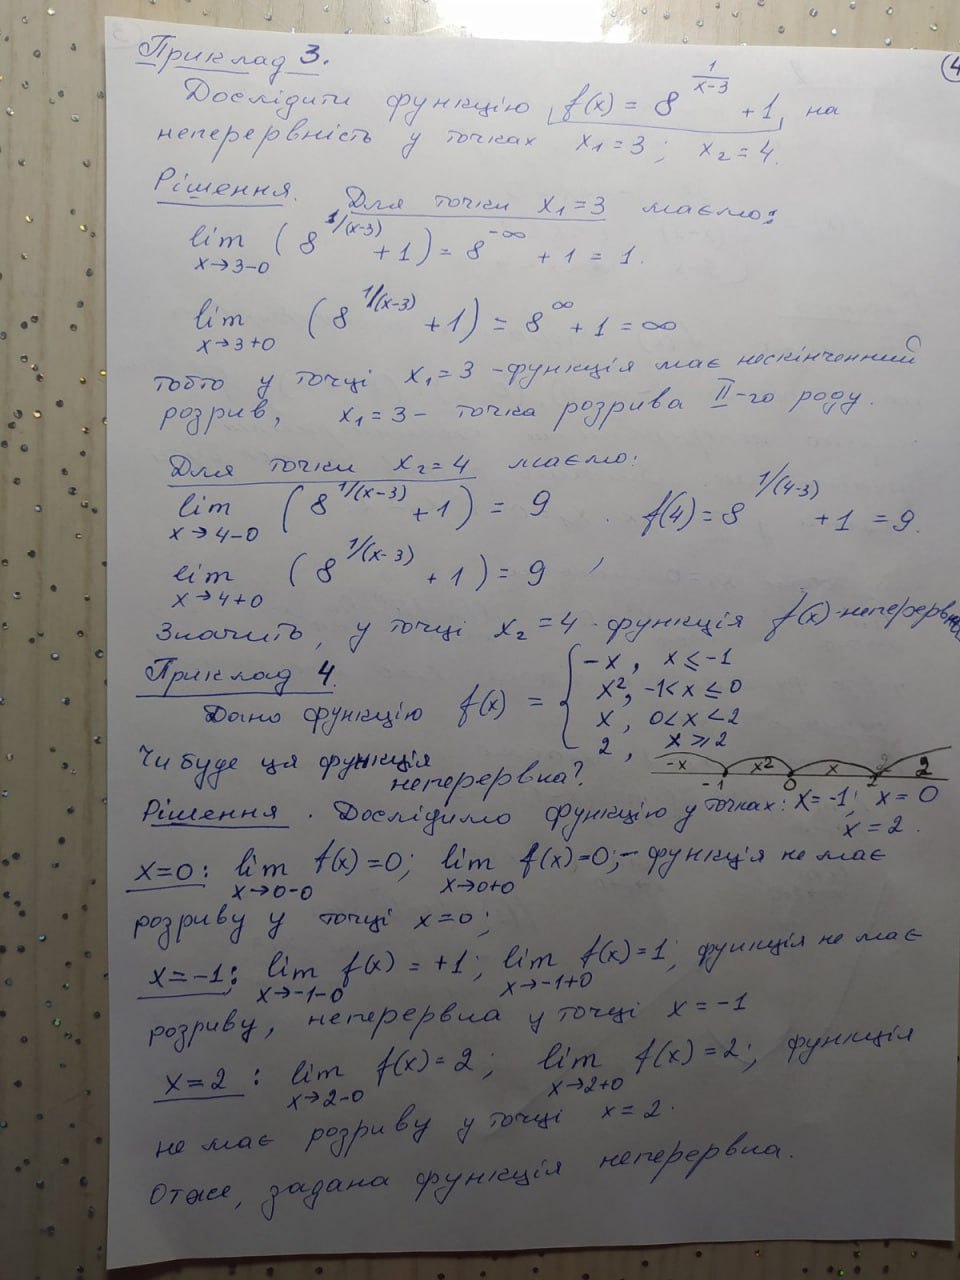 4
Приклад 3.
Дослідити функцію f(x) = 8^{1/(x-3)} + 1, на
неперервність у точках x₁=3; x₂=4.
Рішення. Для точки x₁=3 маємо:
lim_{x→3-0} (8^{1/(x-3)} + 1) = 8^{-∞} + 1 = 1.
lim_{x→3+0} (8^{1/(x-3)} + 1) = 8^{∞} + 1 = ∞
тобто у точці x₁=3 - функція має нескінченний
розрив, x₁=3 - точка розрива II-го роду.
Для точки x₂=4 маємо:
lim_{x→4-0} (8^{1/(x-3)} + 1) = 9. f(4) = 8^{1/(4-3)} + 1 = 9.
lim_{x→4+0} (8^{1/(x-3)} + 1) = 9,
Значить, у точці x₂=4 - функція f(x)-неперервна
Приклад 4.
Дано функцію f(x) = { -x, x ≤ -1
x², -1 < x ≤ 0
x, 0 < x < 2
2, x ≥ 2
Чи буде ця функція
неперервна?
-x x² x 2
-1 0 2
Рішення. Дослідимо функцію у точках: x=-1; x=0
x=2.
x=0: lim_{x→0-0} f(x)=0; lim_{x→0+0} f(x)=0; - функція не має
розриву у точці x=0;
x=-1: lim_{x→-1-0} f(x) = +1; lim_{x→-1+0} f(x)=1; функція не має
розриву, неперервна у точці x=-1
x=2: lim_{x→2-0} f(x)=2; lim_{x→2+0} f(x)=2; функція
не має розриву у точці x=2.
Отже, задана функція неперервна.